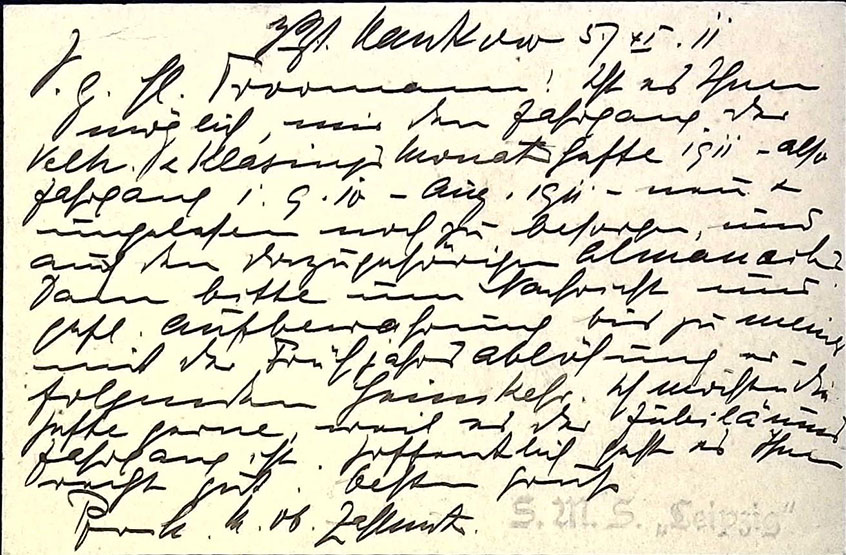 zZt. Hankow 5/XI.11
S. g. H. Troomann! Ist es Ihnen
möglich, mir den Jahrgang der
Velh. & Klasings Monatshefte 1911 - also
Jahrgang 1.9.10 - Aug. 1911 - neu &
ungelesen noch zu besorgen, und
auch den dazugehörigen Almanach?
Dann bitte um Nachricht und
gefl. Aufbewahrung bis zu meiner
mit der Frühjahrsablösung er-
folgenden Heimkehr. Ich möchte die
Hefte gerne, weil es der Jubiläums
Jahrgang ist. Hoffentlich geht es Ihnen
recht gut. Besten Gruß
S.M.S. „Leipzig"